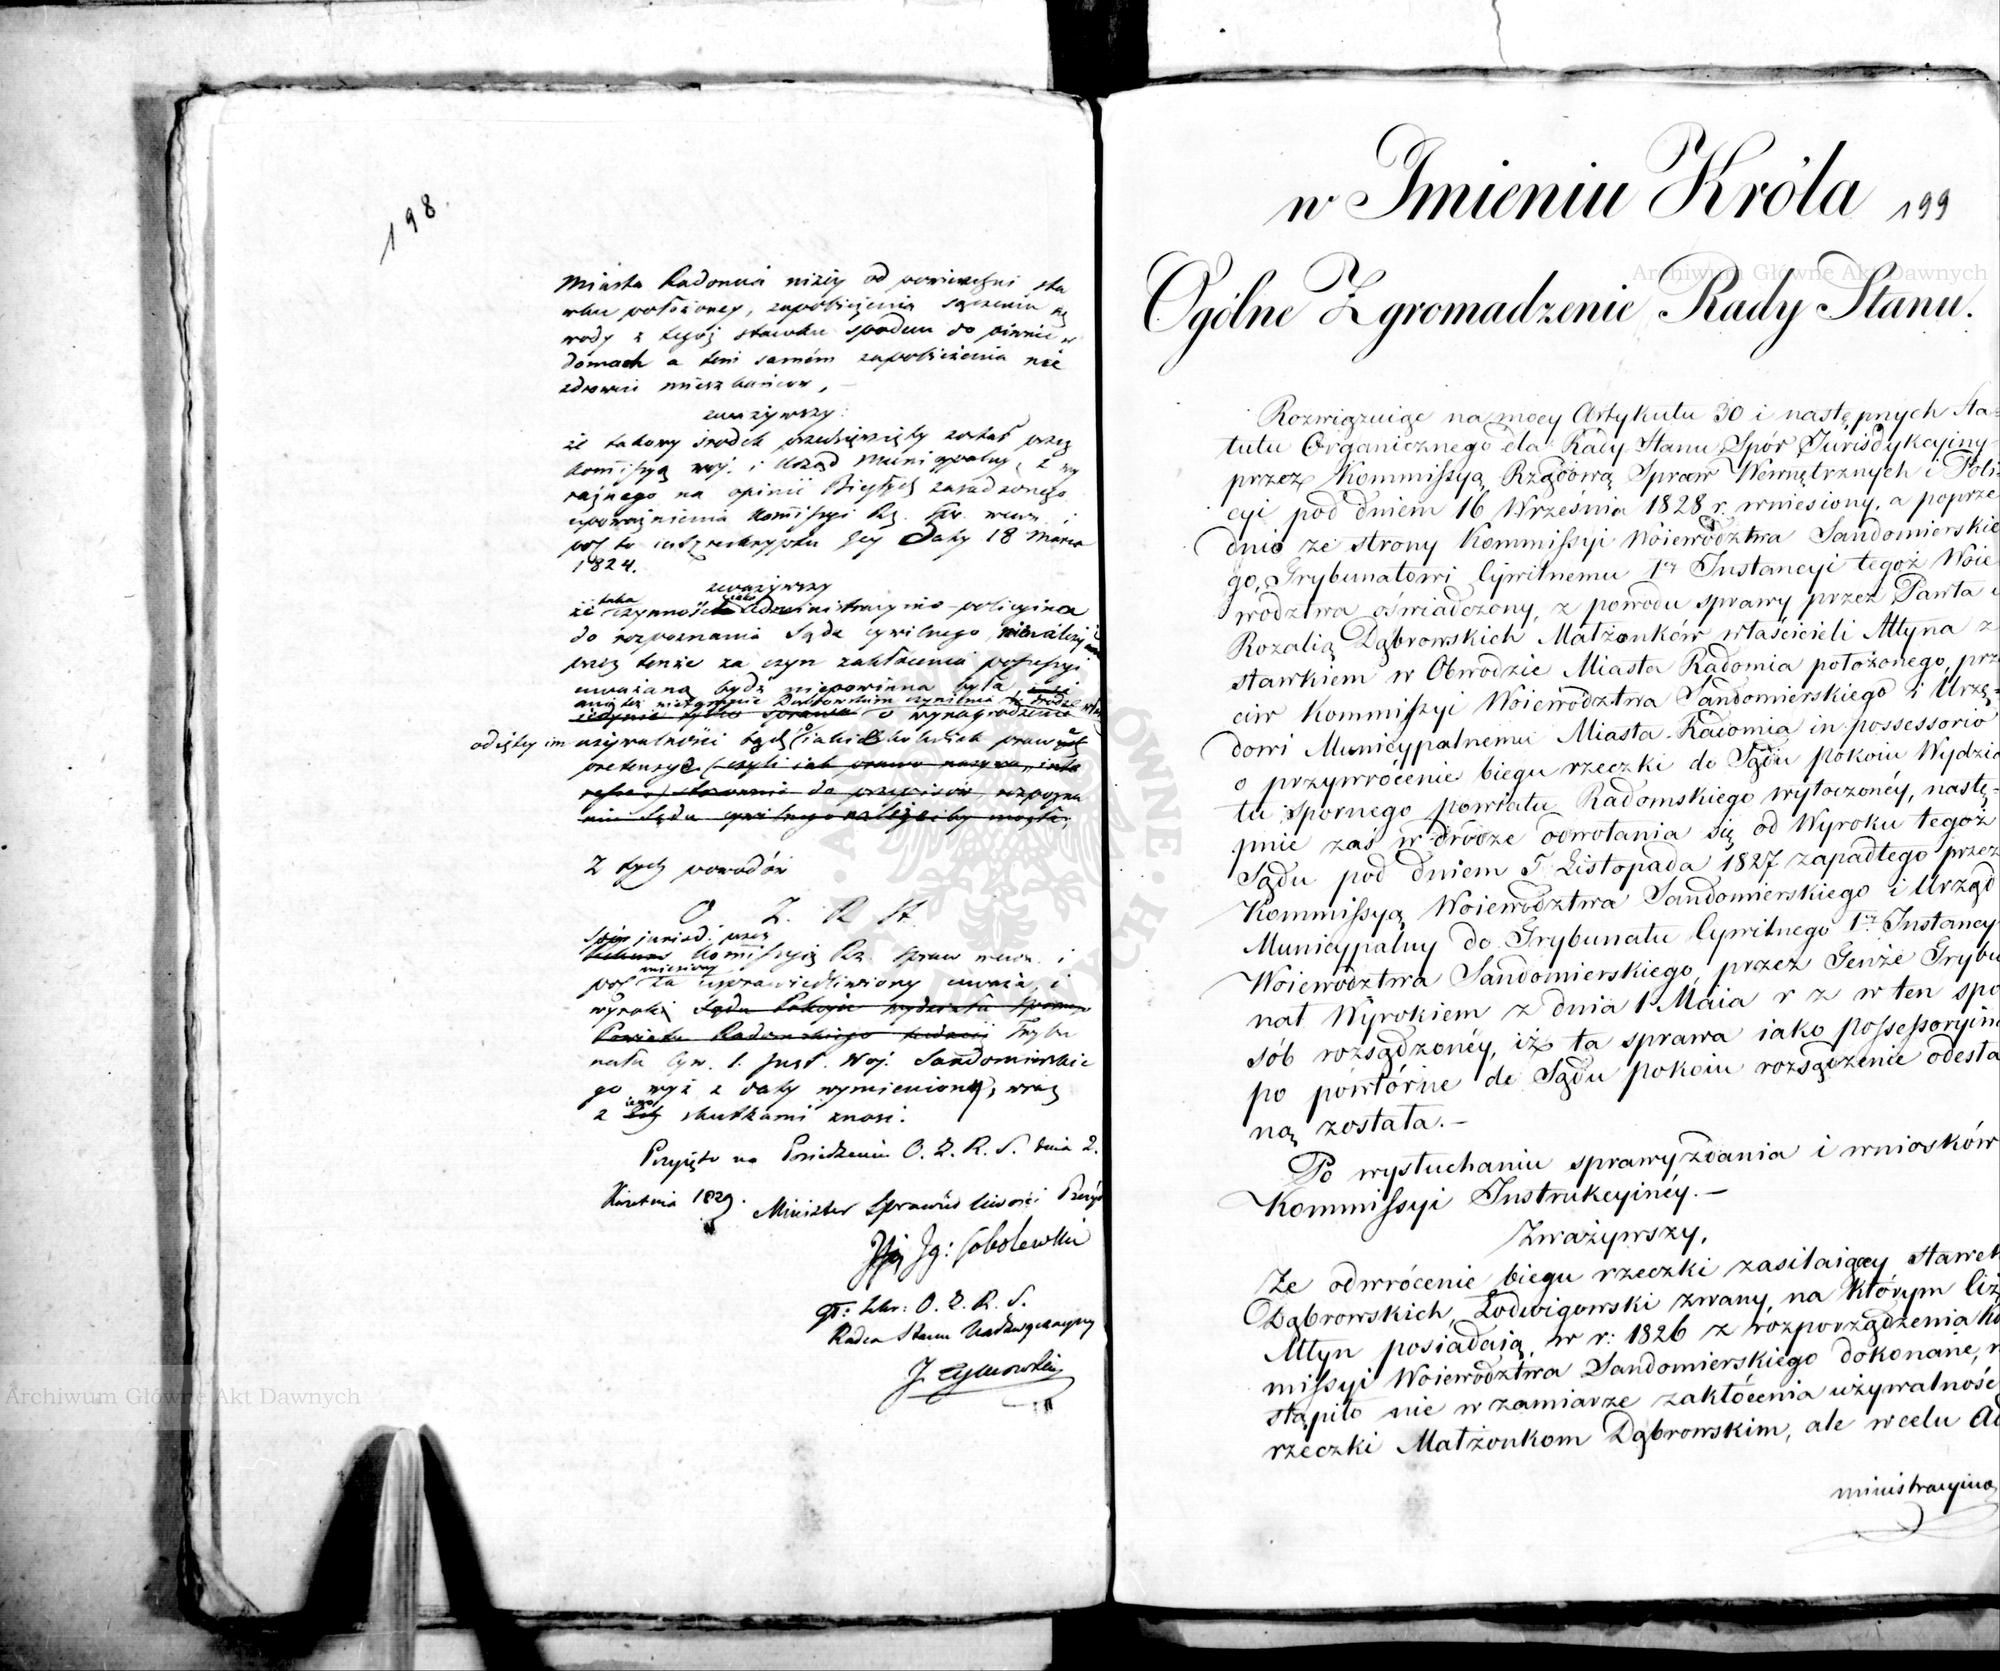 198.
Miasta Radomia niżéy od powierzchni sta
wku położonéy, zapobieżenia sączeniu się
wody z tegoż stawku spodem do piwnic w
domach a tém samém zapobieżenia nie
zdrowiu mieszkańców,
zważywszy:
że takowy środek przedsięwzięty został przez
Kommissyą woj. i Urząd Municypalny, z wy
raźnego na opinii Biegłych zasadzonego
upoważnienia Kommissyi Rz. Spr. wewn. i
pol. to iest reskryptu Jey daty 18 Marca
1824.
zważywszy
że taka czynność iako administracyino-policyina
do rozpoznania Sądu cywilnego nienależy i
przez tenże za czyn zakłócenia possessyi
uważaną bydź niepowinna była,
Dąbrowskim
o wynagrodzenie
odjętey im używalności bądź iakichkolwiek praw
pretensye (czyli iak prawo nazywa, inte
do przepisów rozpozna
nia Sądu cywilnego należećby mogła,
Z tych powodów
O. Z. R. St.
Spór jurisd. przez
Kommissyią Rz. Spraw wewn. i
pol. wniesiony za usprawiedliwiony uważa, i
wyrok Sądu Pokoju wydziału Spornego
Powiatu Radomskiego Trybu
nału Cyw. 1. Inst. Woj. Sandomirskie
go wyż z daty wymieniony, wraz
z iego skutkami znosi.
Przyięto na Posiedzeniu O. Z. R. S. dnia 2.
Kwietnia 1829. Minister Sprawiedliwości Prezyd
Ig: Sobolewski
O. Z. R. S.
Radca Stanu Nadzwyczayny
w Imieniu Króla 199
Ogólne Zgromadzenie Rady Stanu.
Rozwiązuiąc na mocy Artykułu 30 i następnych Sta=
tutu Organicznego dla Rady Stanu, Spór Jurisdykcyiny
przez Kommissyą Rządową Spraw Wewnętrznych i Poli=
cyi pod dniem 16 Września 1828 r. wniesiony, a poprze
dnio ze strony Kommissyi Woiewództwa Sandomierskie
go, Trybunałowi Cywilnemu 1ey Instancyi tegoż Woie
wództwa oświadczony, z powodu sprawy przez Pawła i
Rozalią Dąbrowskich Małżonków właścicieli Młyna z
stawkiem w Obwodzie Miasta Radomia położonego, prze
ciw Kommissyi Woiewództwa Sandomierskiego i Urzę=
dowi Municypalnemu Miasta Radomia in possessorio
o przywrócenie biegu rzeczki do Sądu pokoiu Wydzia
łu Spornego powiatu Radomskiego wytoczonéy, nastę=
pnie zaś w drodze odwołania się od Wyroku tegoż
Sądu pod dniem 5. Listopada 1827 zapadłego przez
Kommissyą Woiewództwa Sandomierskiego i Urząd
Municypalny do Trybunału Cywilnego 1ey Instancyi
Woiewództwa Sandomierskiego, przez Tenże Trybu
nał Wyrokiem z dnia 1 Maia r z w ten spo
sób rozsądzonéy, iż ta sprawa iako possessoryina
po powtórne do Sądu pokoiu rozsądzenie odesła
ną została.—
Po wysłuchaniu sprawyzdania i wniosków
Kommissyi Instrukcyinéy.—
Zważywszy,
Że odwrócenie biegu rzeczki zasilaiącey stawek
Dąbrowskich, Lodwigowski zwany, na którym Ciż
Młyn posiadaią, w r: 1826 z rozporządzenia Ko
missyi Woiewództwa Sandomierskiego dokonane, n
stąpiło nie w zamiarze zakłócenia używalnośc
rzeczki Małżonkom Dąbrowskim, ale w celu Ad
ministracyino
Archiwum Główne Akt Dawnych
Archiwum Główne Akt Dawnych